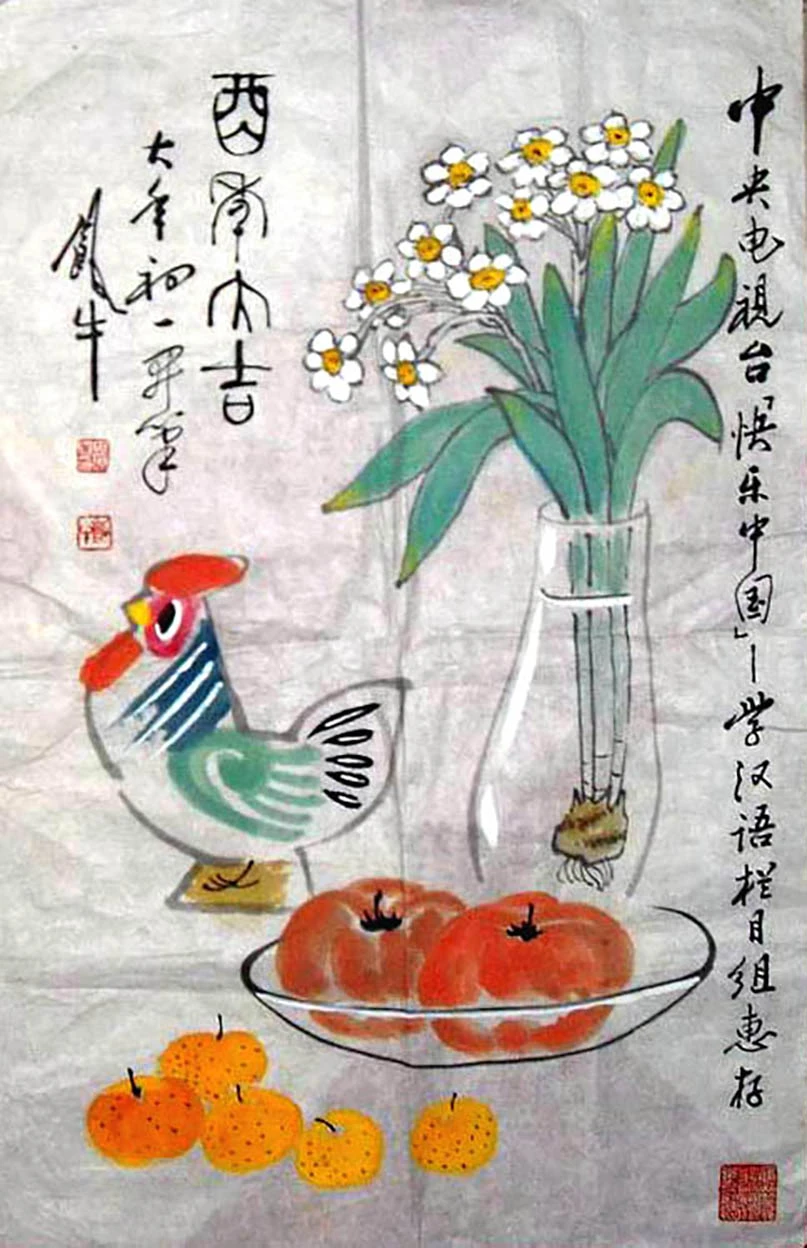 中央电視台「快乐中国」—学汉语栏目组惠存
酉年大吉
大年初一開筆
牛